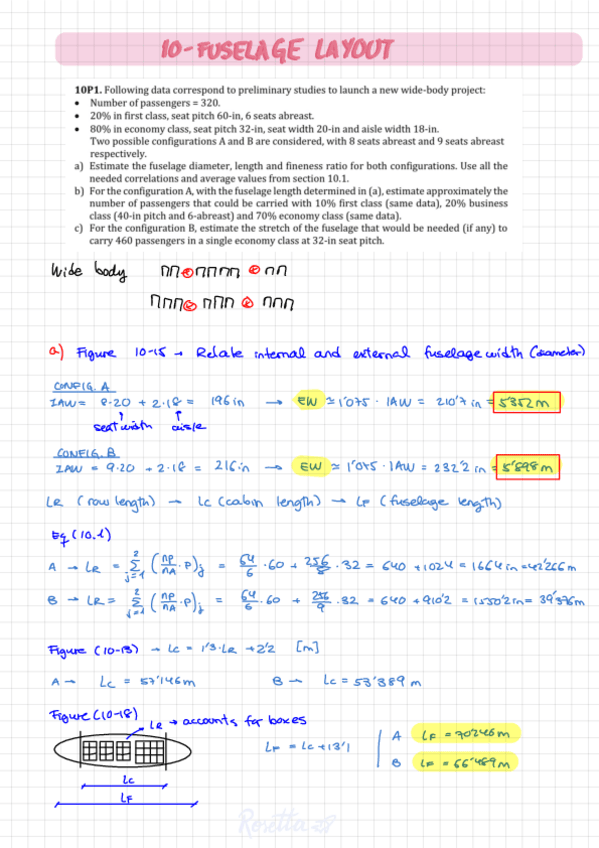 10-FUSELAGE LAYOUT
10P1. Following data correspond to preliminary studies to launch a new wide-body project:
• Number of passengers = 320.
• 20% in first class, seat pitch 60-in, 6 seats abreast.
• 80% in economy class, seat pitch 32-in, seat width 20-in and aisle width 18-in.
Two possible configurations A and B are considered, with 8 seats abreast and 9 seats abreast
respectively.
a) Estimate the fuselage diameter, length and fineness ratio for both configurations. Use all the
needed correlations and average values from section 10.1.
b) For the configuration A, with the fuselage length determined in (a), estimate approximately the
number of passengers that could be carried with 10% first class (same data), 20% business
class (40-in pitch and 6-abreast) and 70% economy class (same data).
c) For the configuration B, estimate the stretch of the fuselage that would be needed (if any) to
carry 460 passengers in a single economy class at 32-in seat pitch.
Wide body
a) Figure 10-15 → Relate internal and external fuselage width (diameter)
CONFIG. A
IAW = 8·20 + 2·18 = 196 in → EW ≃ 1'075 · IAW = 210'7 in = 5'352 m
seat width aisle
CONFIG. B
IAW = 9·20 + 2·18 = 216 in → EW ≃ 1'075 · IAW = 232'2 in = 5'898 m
LR (row length) → LC (cabin length) → LF (fuselage length)
Eq (10.1)
A → LR = Σ²j=1 (np/nA · P)j = 64/6 · 60 + 256/8 · 32 = 640 + 1024 = 1664 in = 42'266 m
B → LR = Σ²j=1 (np/nA · P)j = 64/6 · 60 + 256/9 · 32 = 640 + 910'2 = 1550'2 in = 39'376 m
Figure (10-13) → LC = 1'3·LR + 2'2 [m]
A → LC = 57'146 m B → LC = 53'389 m
Figure (10-18)
LR → accounts for boxes
LF = LC + 13'1
A LF = 70'246 m
B LF = 66'489 m
LC
LF
Rosetta